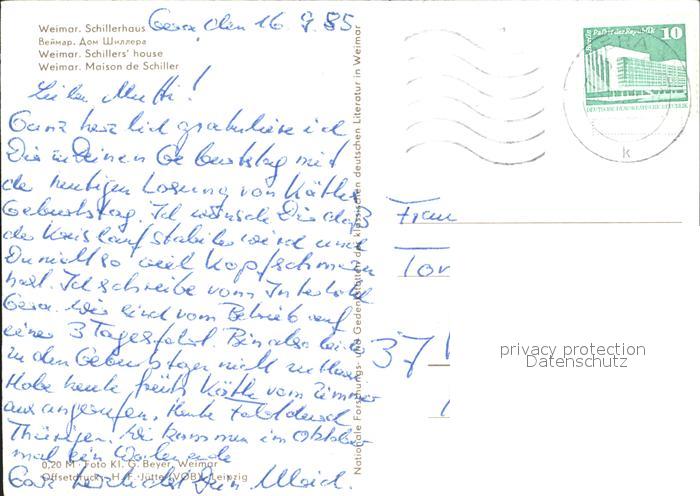 Weimar. Schillerhaus
Веймар. Дом Шиллера
Weimar. Schillers' house
Weimar. Maison de Schiller
Gera, den 16. 9. 85
Liebe Mutti!
Ganz herzlich gratuliere ich
Dir zu Deinen Geburtstag mit
der heutigen Losung von Käthes
Geburtstag. Ich wünsche Dir daß
der Kreislauf stabiler wird und
Du nicht so viel Kopfschmerzen
hast. Ich schreibe vom Interhotel
Gera. Wir sind vom Betrieb auf
einer 3 Tagesfahrt. Bin also leider
zu den Geburtstagen nicht zu Hause.
Habe heute früh Käthe vom Zimmer
aus angerufen. Heute
Thüringen. Wir kommen im Oktober
mal ein Wochenende
Ganz herzlichst Dein
0,20 M · Foto Kl. G. Beyer, Weimar
Offsetdruck: H.-F. Jütte (VOB), Leipzig
Nationale Forschungs- und Gedenkstätten der klassischen deutschen Literatur in Weimar
Berlin Palast der Republik 10
DEUTSCHE DEMOKRATISCHE REPUBLIK
k
Frau
37
privacy protection
Datenschutz